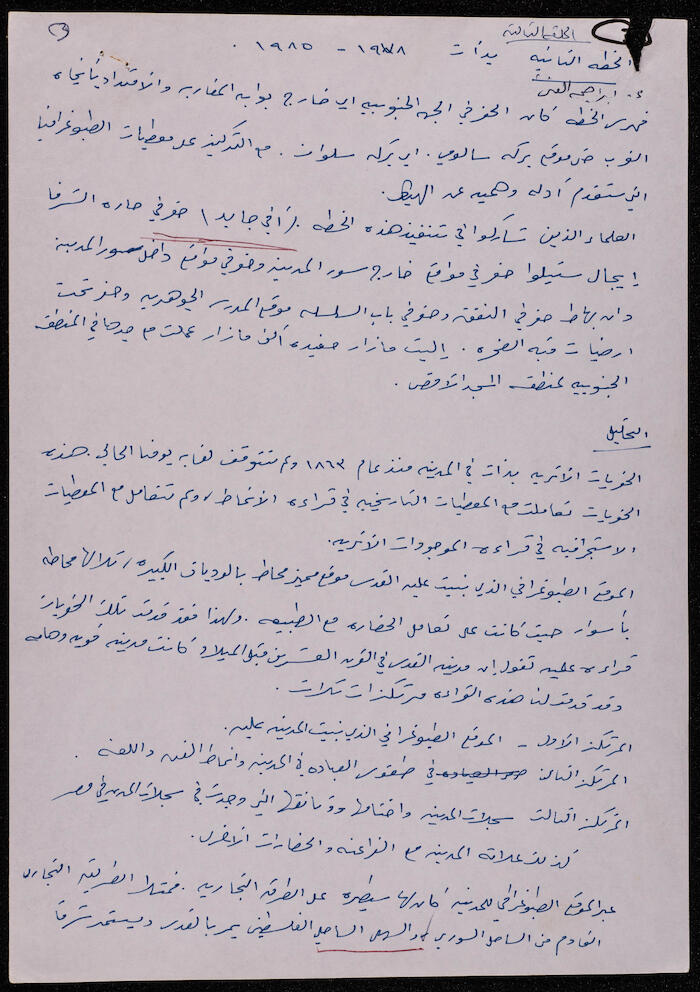 3
الحلقه الثالثه
الخطه الثانيه بدأت ١٩٧٨ - ١٩٨٥ .
د. ابراهيم الفني
فهرس الخطه كان الحفر في الجهه الجنوبيه اي خارج بوابه المغاربه والامتداد بأتجاه
الغرب حتى موقع بركه سالومي . اي بركه سلوان . مع التركيز على معطيات الطبوغرافيا
التي ستقدم أدله وهميه عن الهيكل .
العلماء الذين شاركوا في تنفيذ هذه الخطه . ( أفي جايد ) حفر في حاره الشرفا
إيجال شيلوا حفر في مواقع خارج سور المدينه وحفر في مواقع داخل سور المدينة
دان بهاط حفر في النفق وحفر في باب السلسله موقع المدرسه الجوهريه وحفر تحت
ارضيات قبه الصخره . إليت مازار حفيده ألن مازار عملت مع جدها في المنطقه
الجنوبيه لمنطقه المسجد الاقصى .
التحليل
الحفريات الأثريه بدأت في المدينه منذ عام ١٨٦٣ ولم تتوقف لغايه يومنا الحالي . هذه
الحفريات تعاملت مع المعطيات التاريخيه في قراءه الانماط ، ولم تتعامل مع المعطيات
الاستجرافيه في قراءه الموجودات الأثريه .
الموقع الطبوغرافي الذي بنيت عليه القدس موقع مميز محاط بالوديان الكبيره ، تلالها محاطه
بأسوار حيث كانت على تعامل الحضاره مع الطبيعه . ولهذا فقد قدمت تلك الحفريات
قراءه علميه تقول إن مدينه القدس في القرن العشرين قبل الميلاد كانت مدينه قويه وهامه
وقد قدمت لنا هذه القراءه مرتكزات ثلاث .
المرتكز الأول - الموقع الطبوغرافي الذي بنيت المدينه عليه .
المرتكز الثاني في طقوس العباده في المدينه وانماط الفن واللغه .
المرتكز الثالث سجلات المدينه واختامها ووثائقها التي وجدت في سجلات المدن في مصر
كذلك علاقة المدينه مع الفراعنه والحضارات الأخرى .
عبر الموقع الطبوغرافي للمدينه كان لها سيطره على الطرق التجاريه . فمثلا الطريق التجاري
القادم من الساحل السوري / والسهل الساحلي الفلسطيني يمر بالقدس ويستمر شرقا